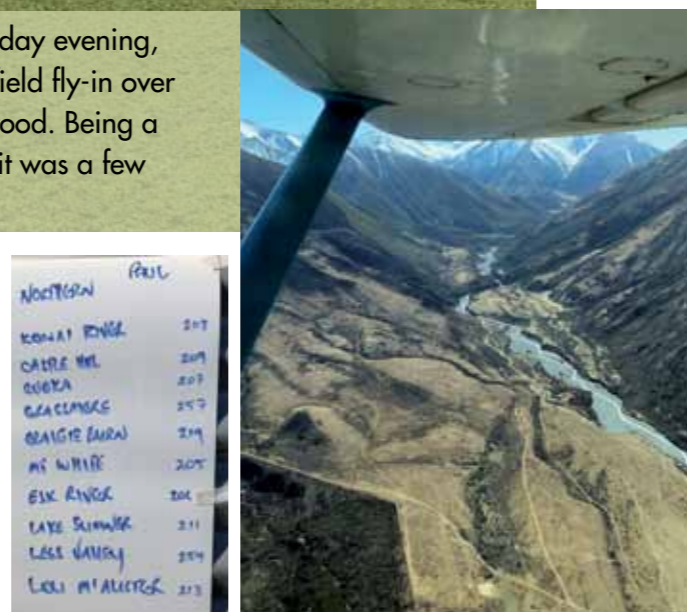 day evening,
ield fly-in over
ood. Being a
it was a few
NORTHERN
RIVER 207
CASTLE HILL 209
207
GRASSMERE 257
CRAIGIE BURN 219
MT WHITE 205
ELK RIVER
LAKE SUMNER 211
LESS VALLEY 254
M'ALISTER 213